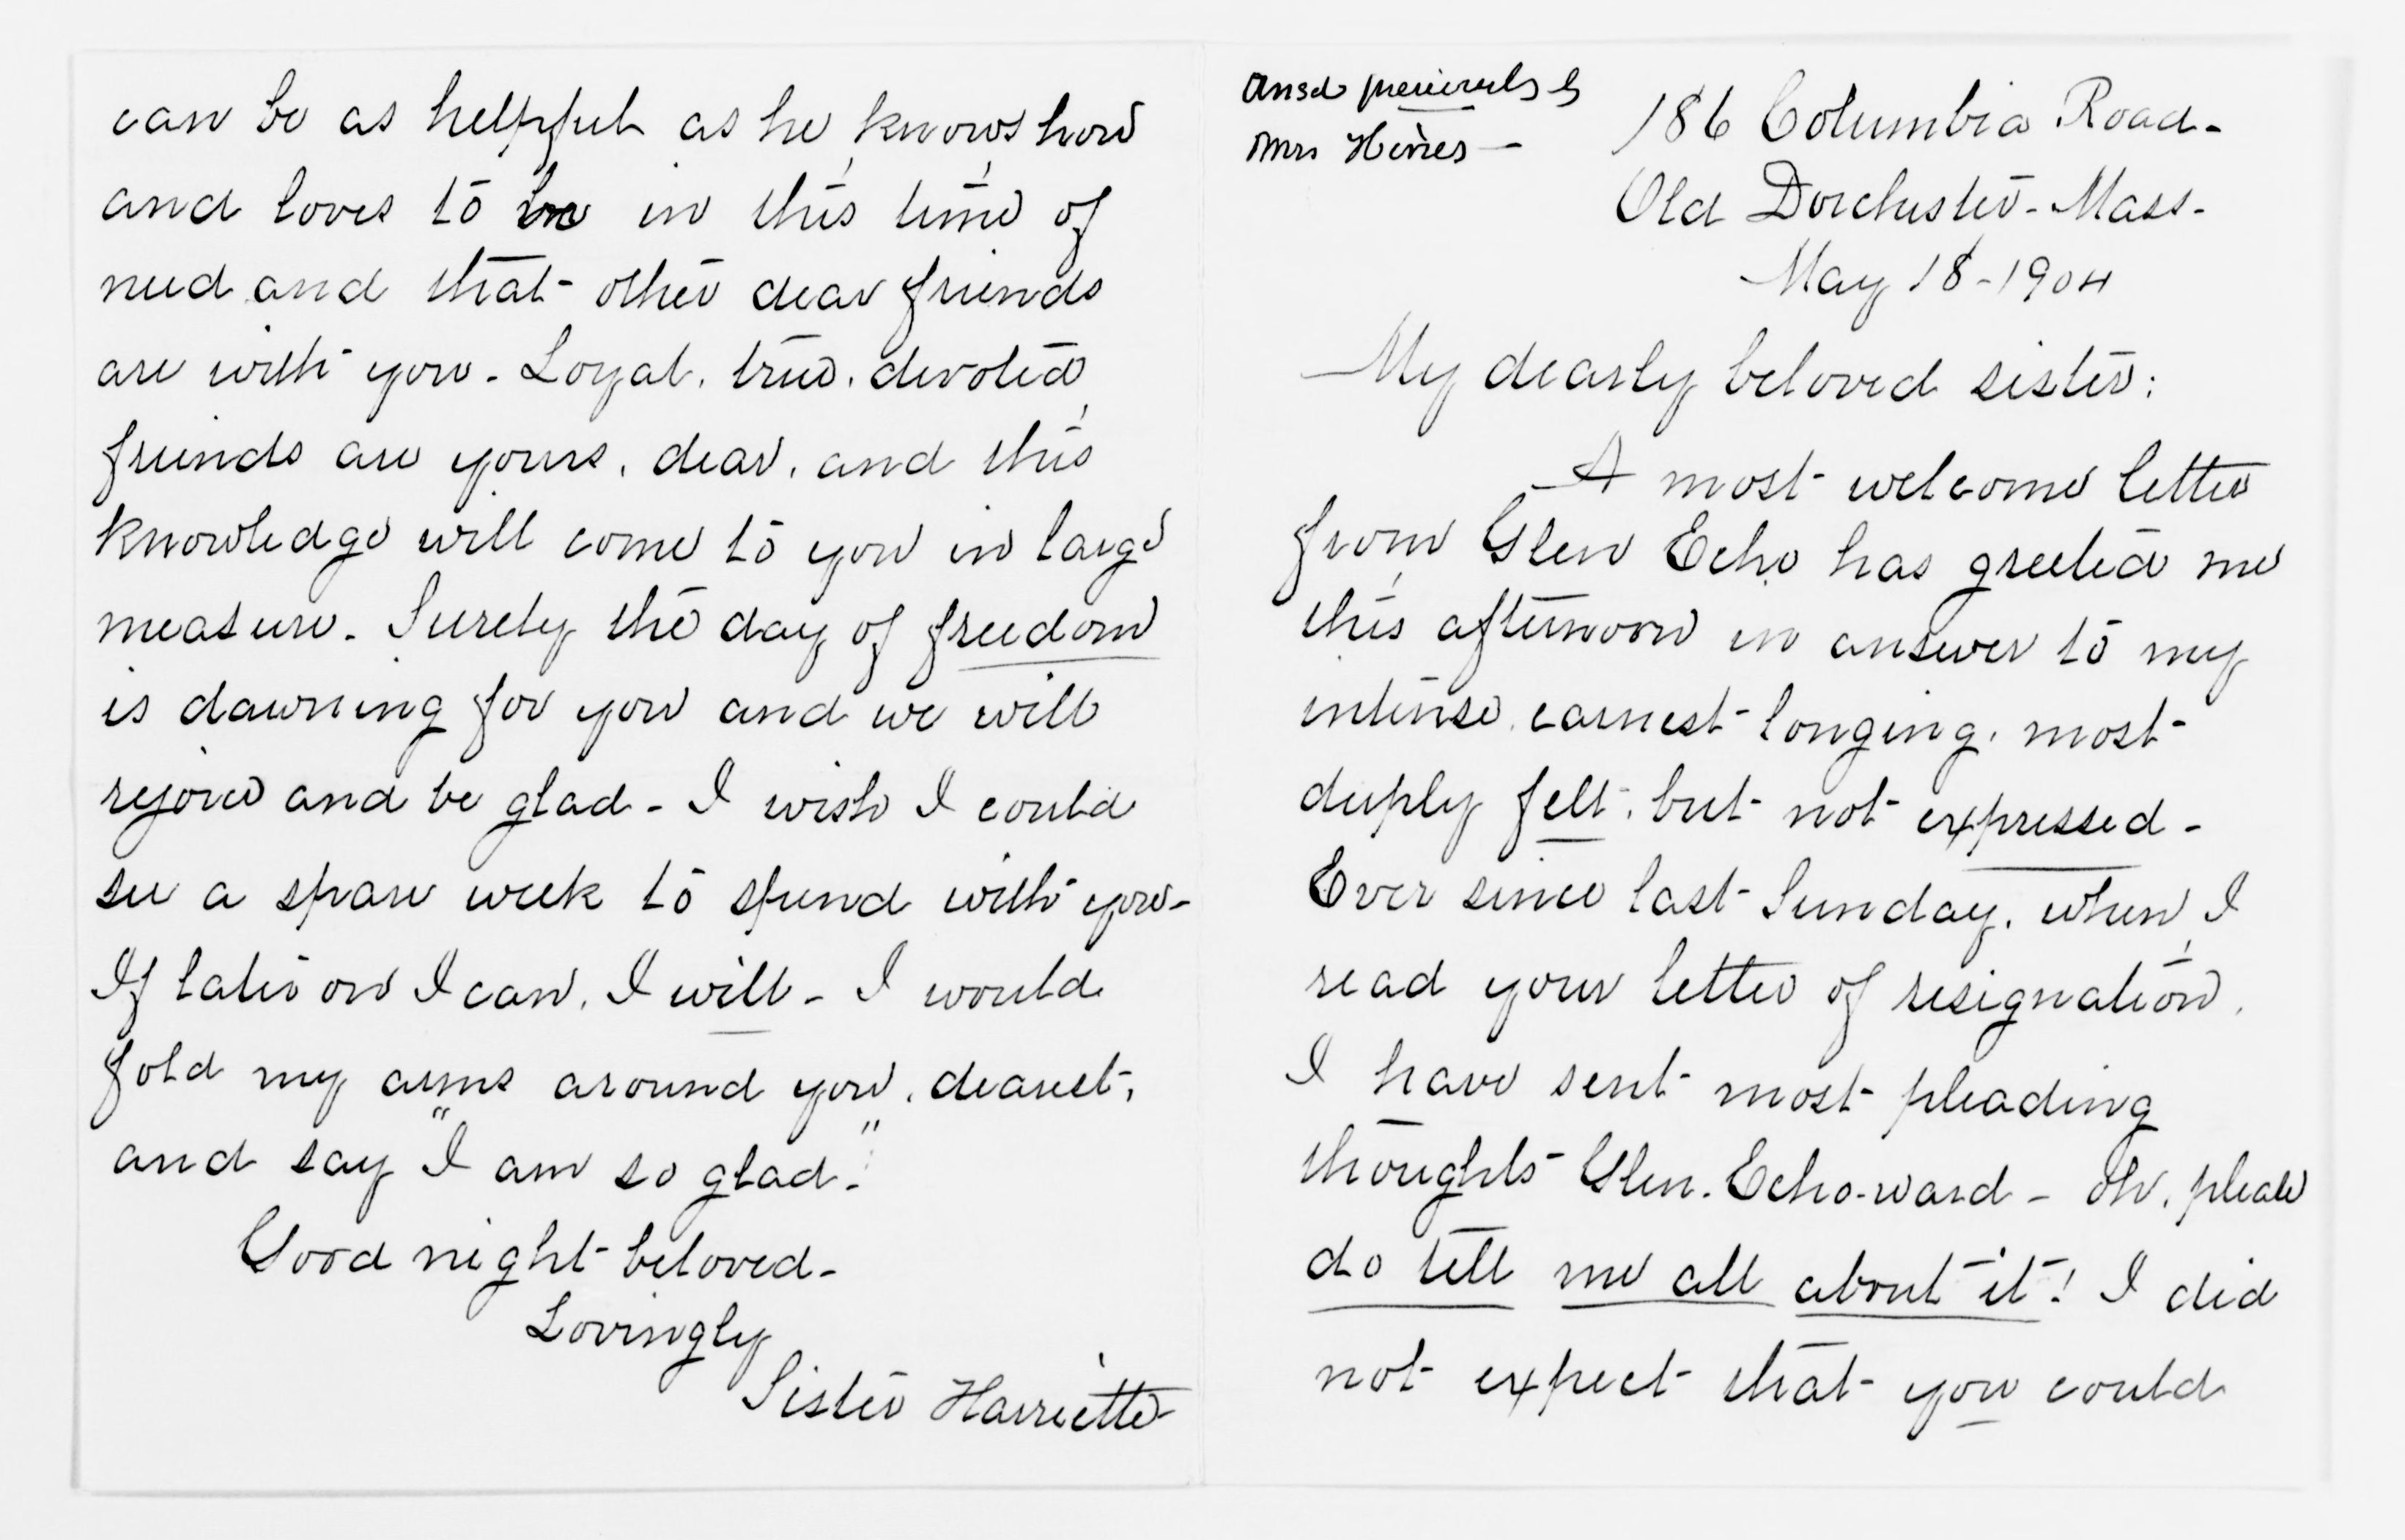 can be as helpful as he knows how
and loves to be in this time of
need and that other dear friends
are with you - Loyal, true, devoted
friends are yours, dear, and this
knowledge will come to you in large
measure - Surely the day of freedom
is dawning for you and we will
rejoice and be glad - I wish I could
see a spare week to spend with you -
If later on I can, I will - I would
fold my arms around you, dearest,
and say "I am so glad."
Good night beloved -
Lovingly
Sister Harriette
Ansd
Mrs Hines -
186 Columbia Road -
Old Dorchester - Mass -
May 18 - 1904
My dearly beloved sister:
A most welcome letter
from Glen Echo has greeted me
this afternoon in answer to my
intense, earnest longing, most
deeply felt, but not expressed -
Ever since last Sunday, when I
read your letter of resignation,
I have sent most pleading
thoughts Glen-Echo-ward - Oh, please
do tell me all about it! I did
not expect that you could